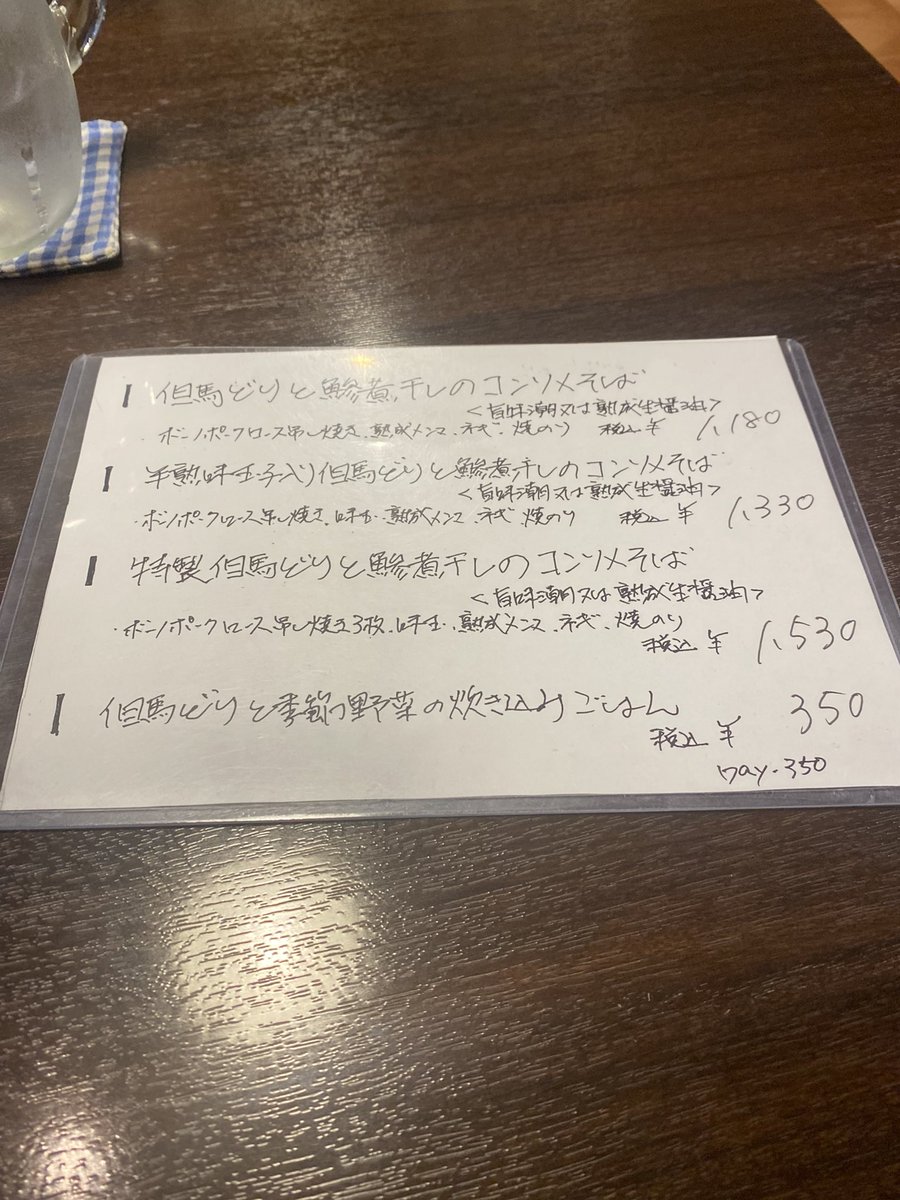 但馬どりと鯵煮干しのコンソメそば
<旨味潮又は熟成生醤油>
・ボンノポークロース吊し焼き、熟成メンマ、ネギ、焼のり 税込 ¥ 1,180
半熟味玉子入り但馬どりと鯵煮干しのコンソメそば
<旨味潮又は熟成生醤油>
・ボンノポークロース吊し焼き、味玉、熟成メンマ、ネギ、焼のり 税込 ¥ 1,330
特製但馬どりと鯵煮干しのコンソメそば
<旨味潮又は熟成生醤油>
・ボンノポークロース吊し焼き3枚、味玉、熟成メンマ、ネギ、焼のり
税込 ¥ 1,530
但馬どりと季節野菜の炊き込みごはん
税込 ¥ 350
350